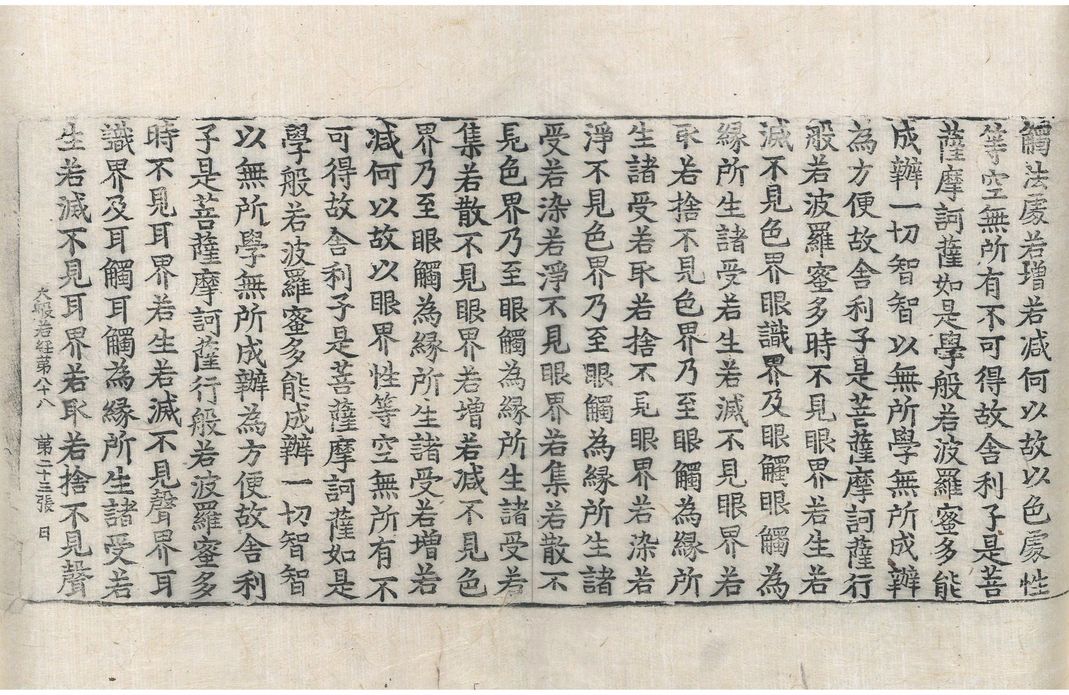 觸法處若增若减何以故以色處性
等空無所有不可得故舍利子是菩
薩摩訶薩如是學般若波羅蜜多能
成辦一切智智以無所學無所成辦
為方便故舍利子是菩薩摩訶薩行
般若波羅蜜多時不見眼界若生若
滅不見色界眼識界及眼觸眼觸為
緣所生諸受若生若滅不見眼界若
取若捨不見色界乃至眼觸為緣所
生諸受若取若捨不見眼界若染若
淨不見色界乃至眼觸為緣所生諸
受若染若淨不見眼界若集若散不
見色界乃至眼觸為緣所生諸受若
集若散不見眼界若增若减不見色
界乃至眼觸為緣所生諸受若增若
减何以故以眼界性等空無所有不
可得故舍利子是菩薩摩訶薩如是
學般若波羅蜜多能成辦一切智智
以無所學無所成辦為方便故舍利
子是菩薩摩訶薩行般若波羅蜜多
時不見耳界若生若滅不見聲界耳
識界及耳觸耳觸為緣所生諸受若
生若滅不見耳界若取若捨不見聲
大般若経第八十八 第二十三張 日